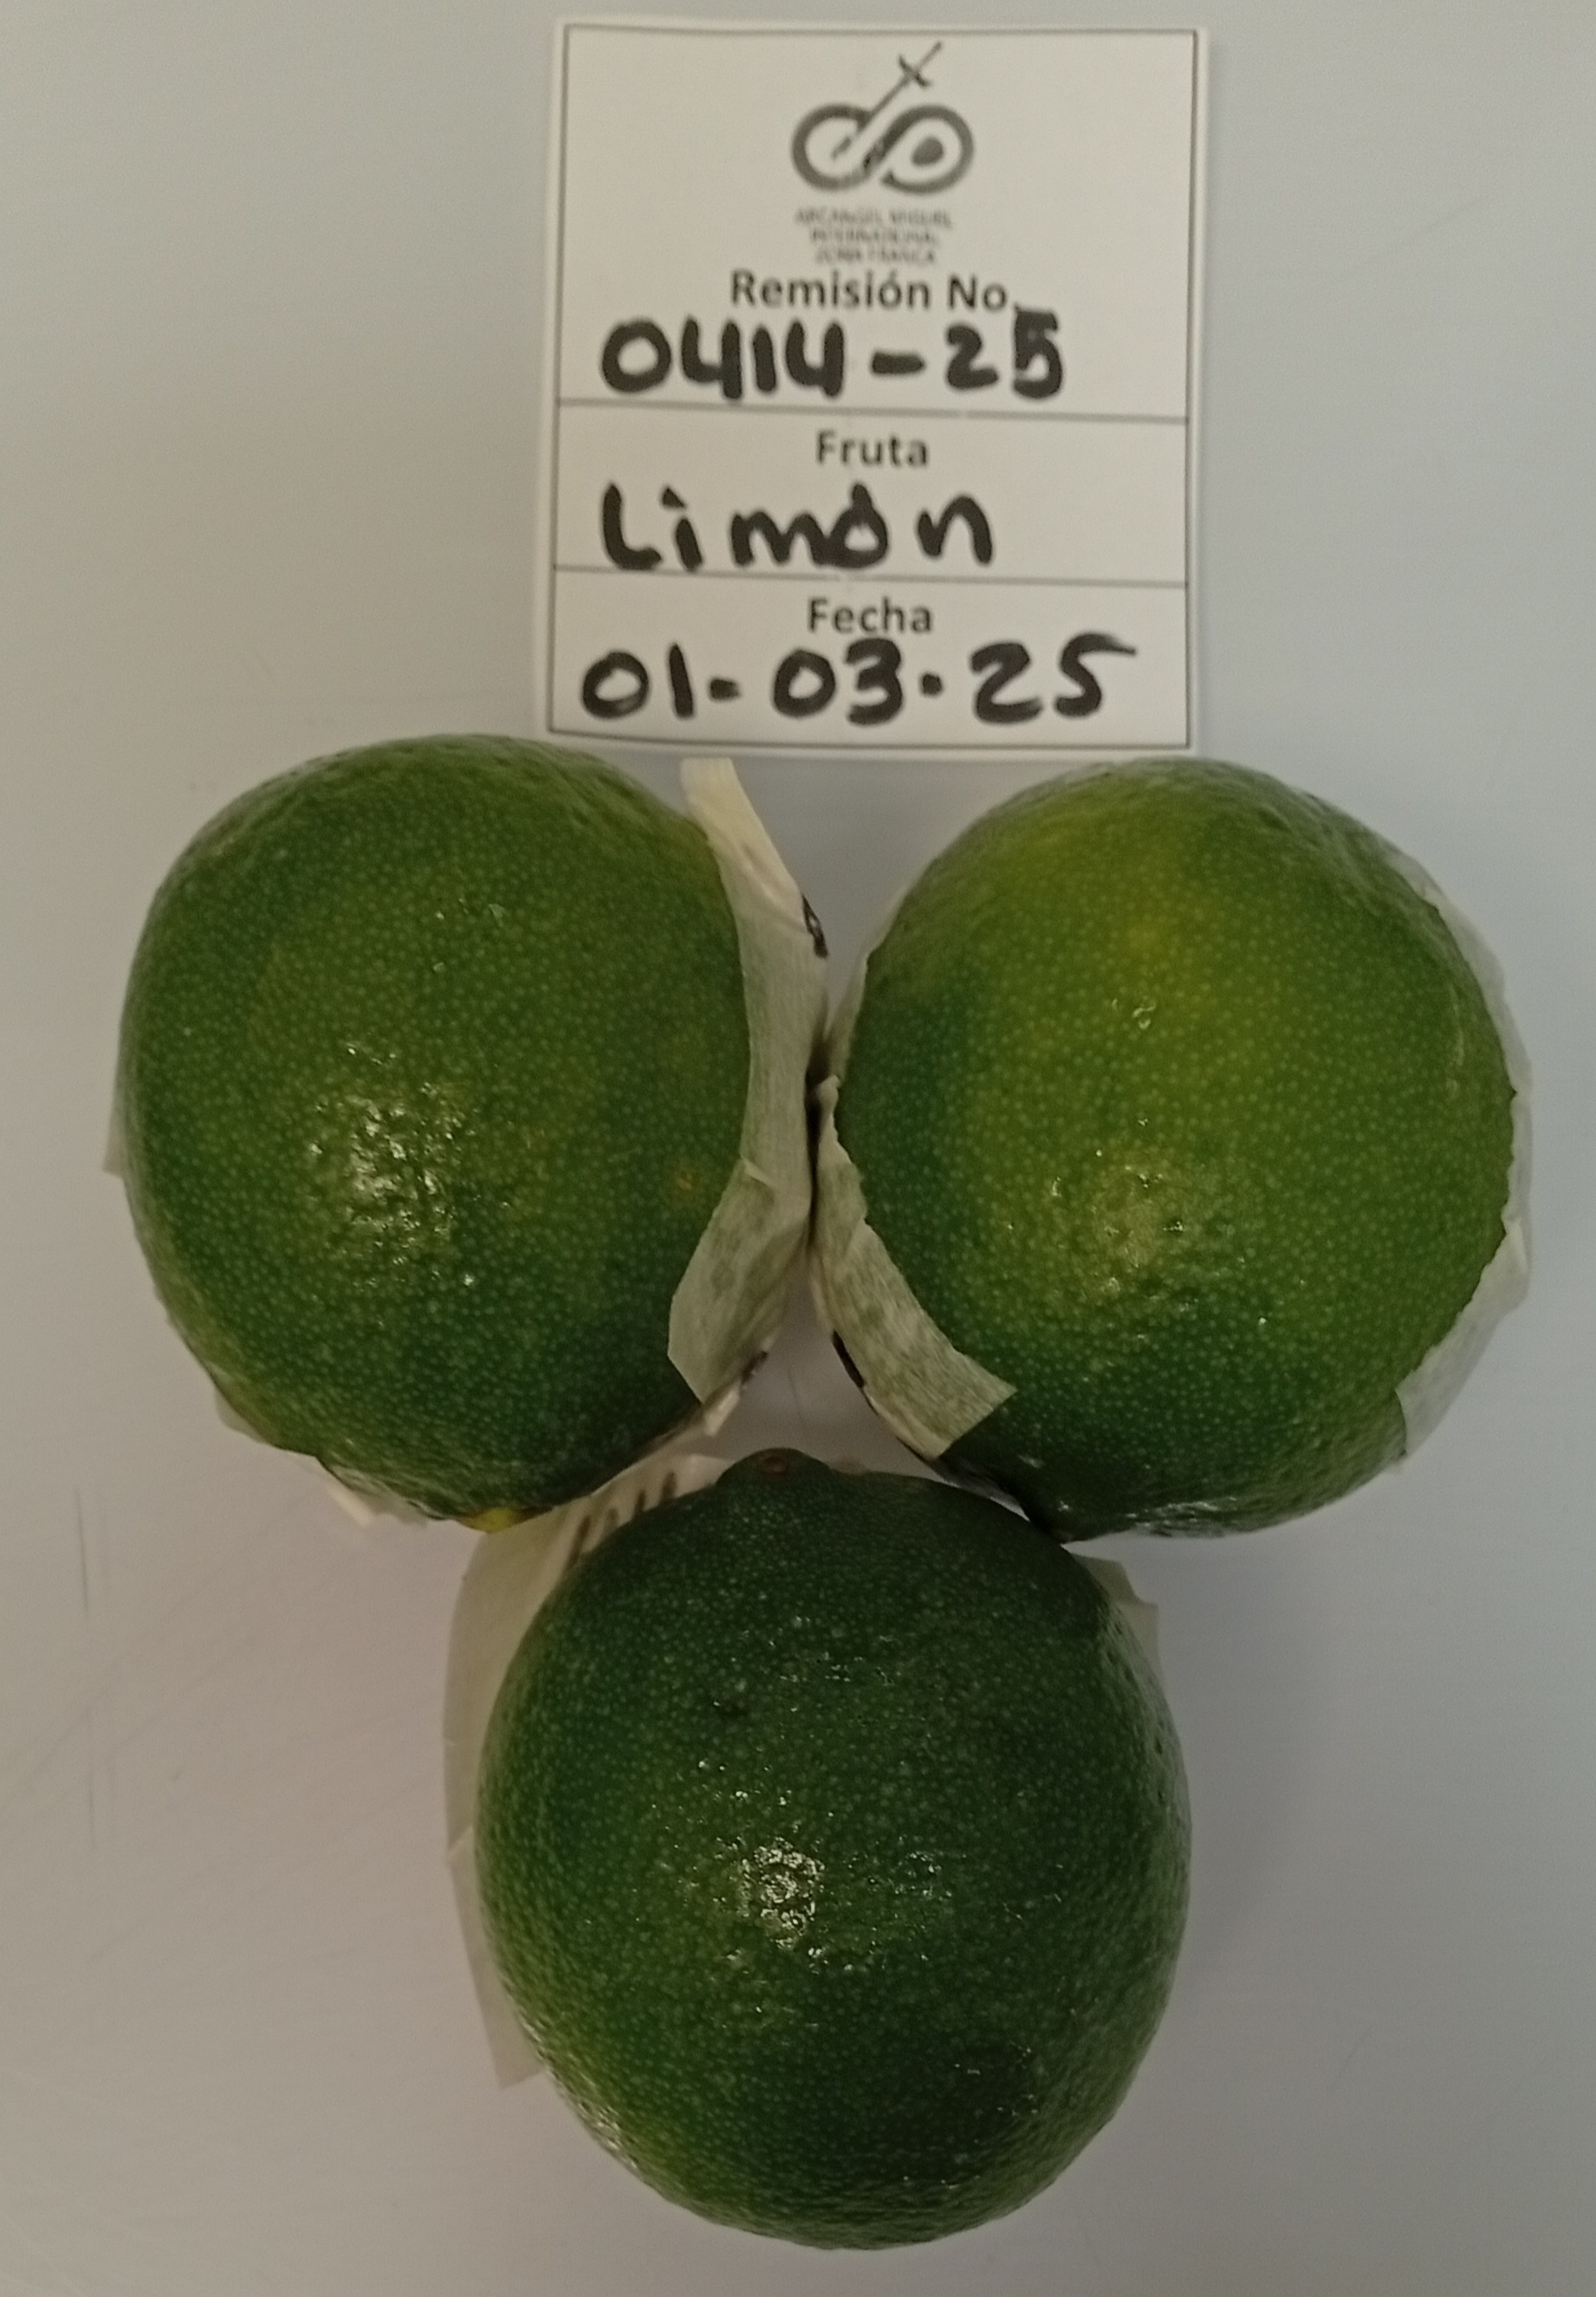 ARCANGEL MIGUEL
INTERNATIONAL
ZONA FRANCA
Remisión No.
0414-25
Fruta
Limón
Fecha
01-03-25